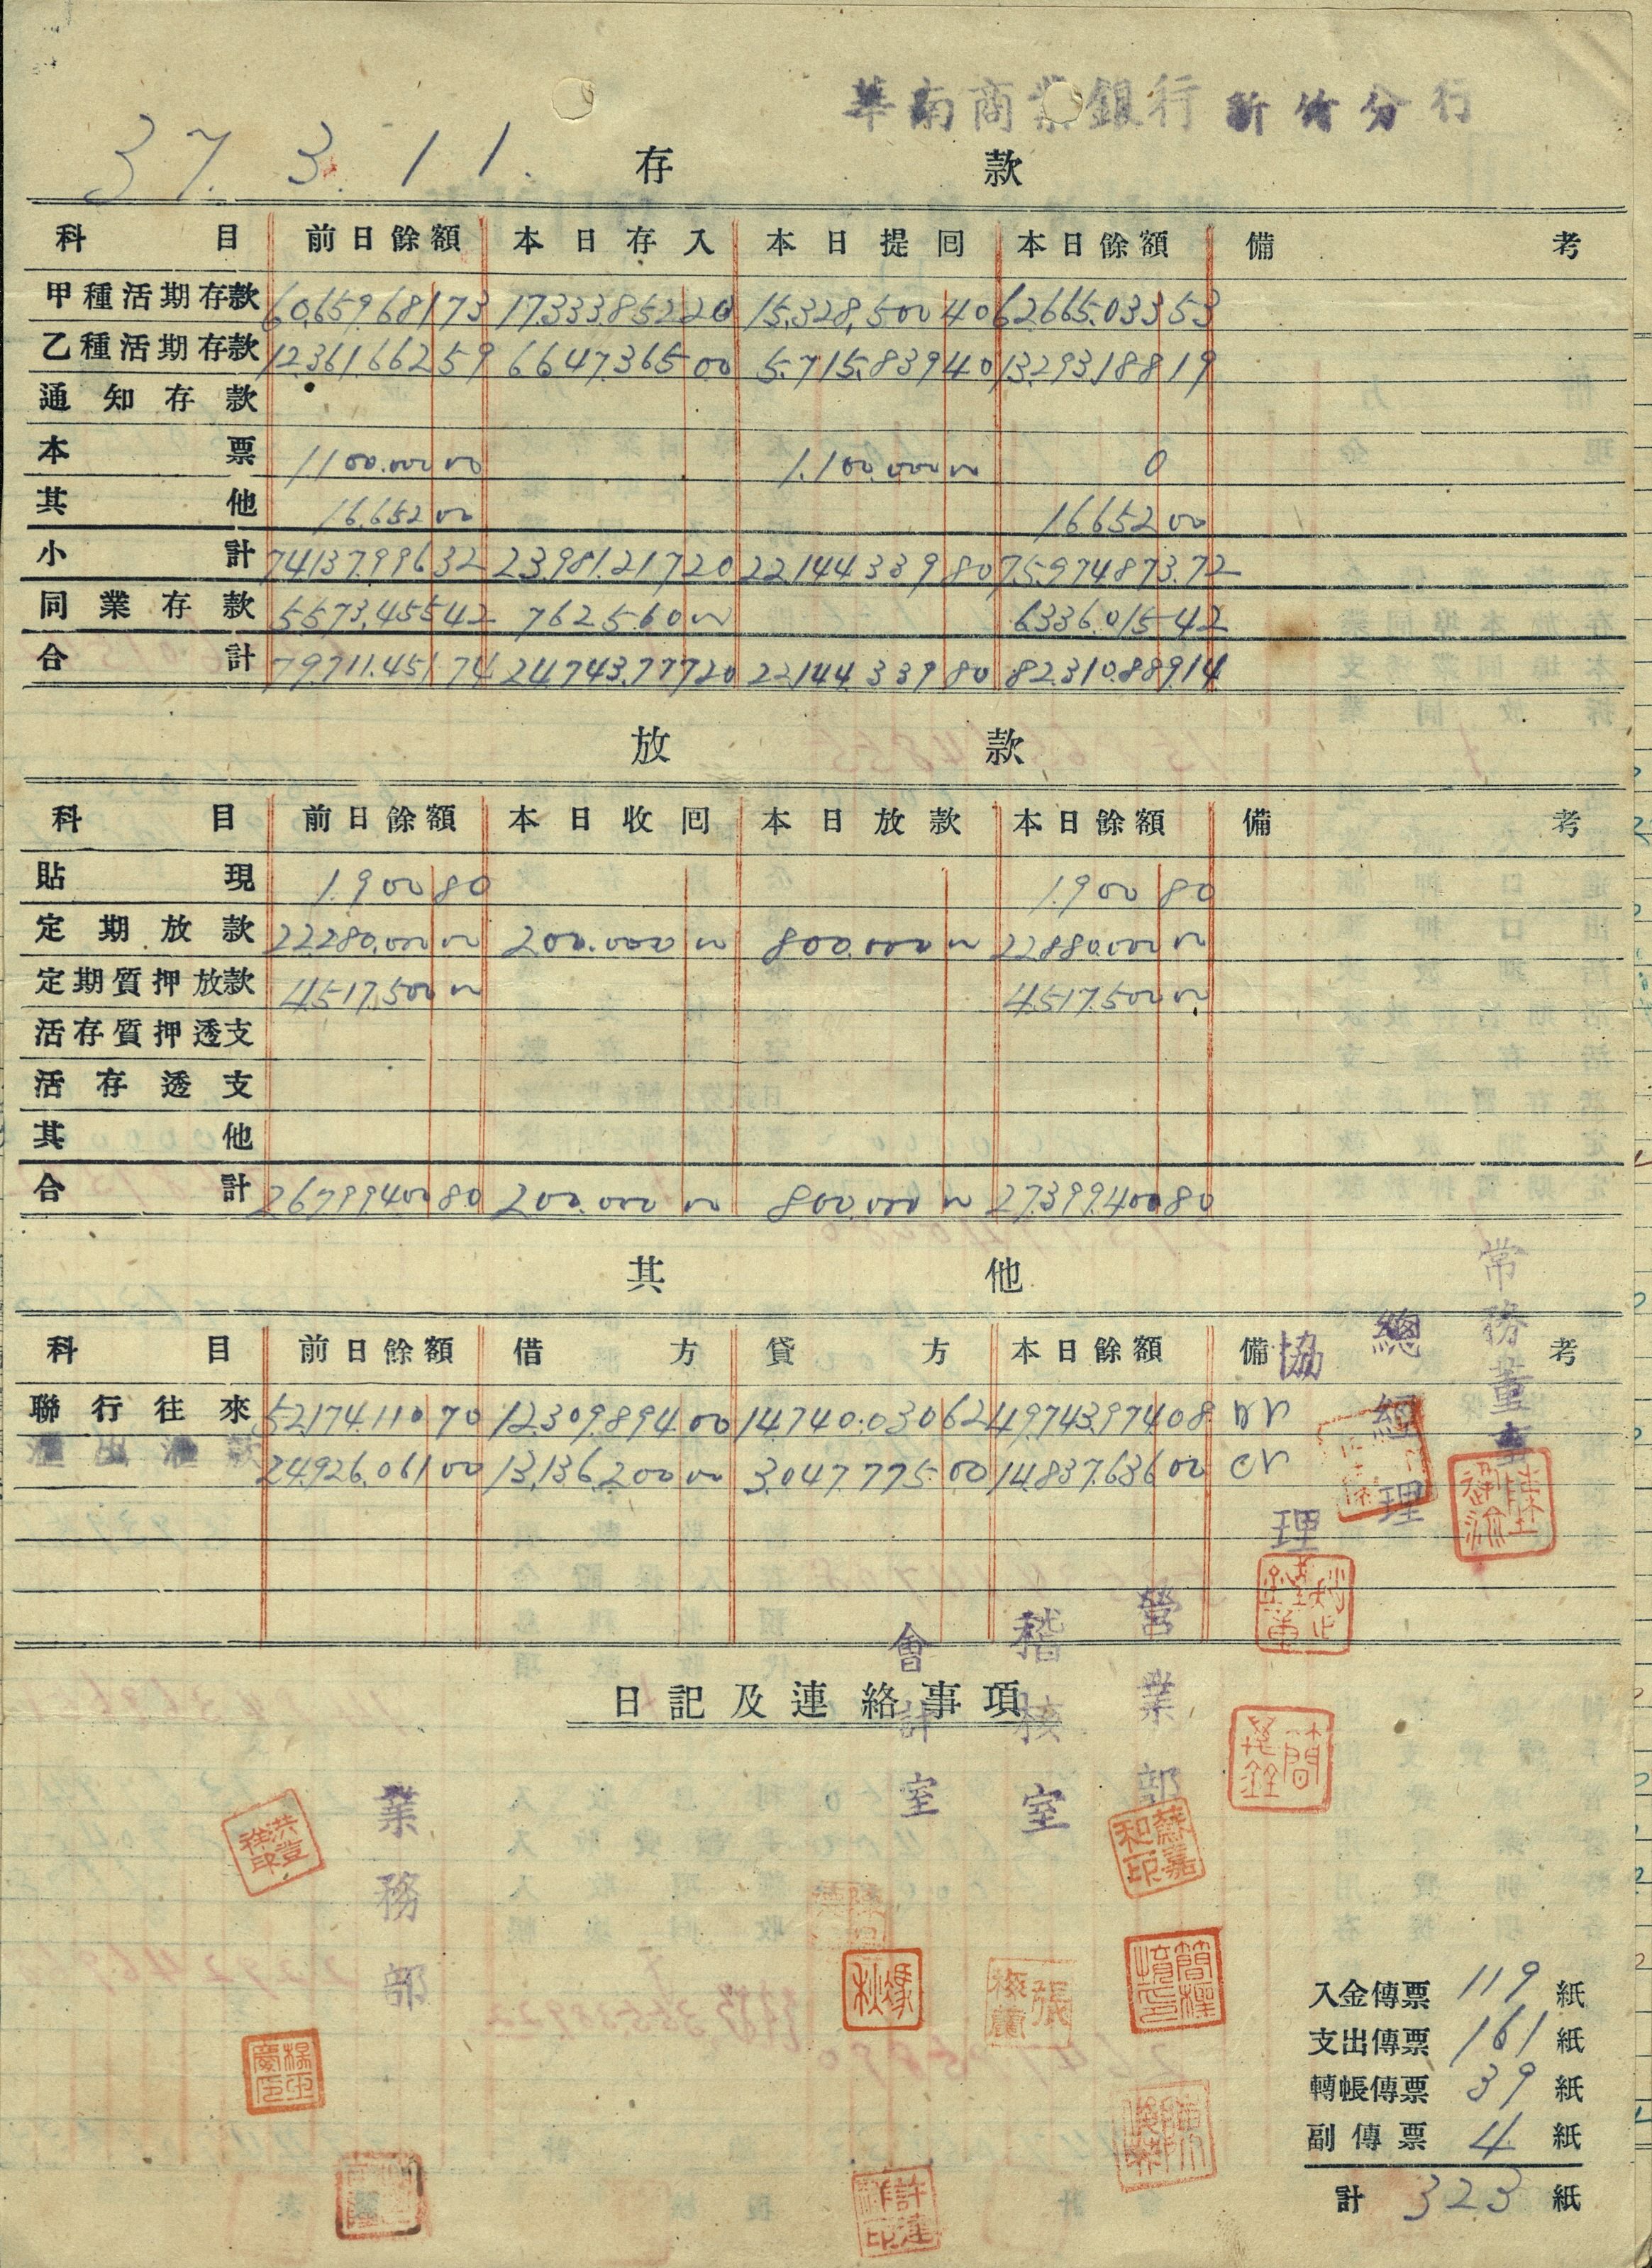 華南商業銀行 新竹分行
37. 3. 11.
存 款
科目 前日餘額 本日存入 本日提回 本日餘額 備考
甲種活期存款 60.659.681 73 17.333.852 20 15.328.500 40 62.665.033 53
乙種活期存款 12.361.662 59 6.647.365 00 5.715.839 40 13.293.188 19
通知存款
本票 1.100.000 00 1.100.000 00 0
其他 16.652 00 16.652 00
小計 74.137.996 32 23.981.217 20 22.144.339 80 75.974.873.72
同業存款 5.573.455 42 762.560 00 6.336.015 42
合計 79.711.451 74 24.743.777 20 22.144.339 80 82.310.889 14
放 款
科目 前日餘額 本日收回 本日放款 本日餘額 備考
貼現 1.900 80 1.900 80
定期放款 22.280.000 00 200.000 00 800.000 00 22.880.000 00
定期質押放款 4.517.500 00 4.517.500 00
活存質押透支
活存透支
其他
合計 26.799.400 80 200.000 00 800.000 00 27.399.400 80
其 他
科目 前日餘額 借方 貸方 本日餘額 備考
聯行往來 52.174.110 70 12.309.894.00 14.740.030 62 49.743.974 08 Dr
24.926.061 00 13.136.200 00 3.047.775.00 14.837.636 00 Cr
常務董事
總經理
協理
營業部
稽核室
會計室
業務部
日記及連絡事項
洪登
印
蘇嘉和印
馮秋
張
簡
許達
印
入金傳票 119 紙
支出傳票 161 紙
轉帳傳票 39 紙
副傳票 4 紙
計 323 紙